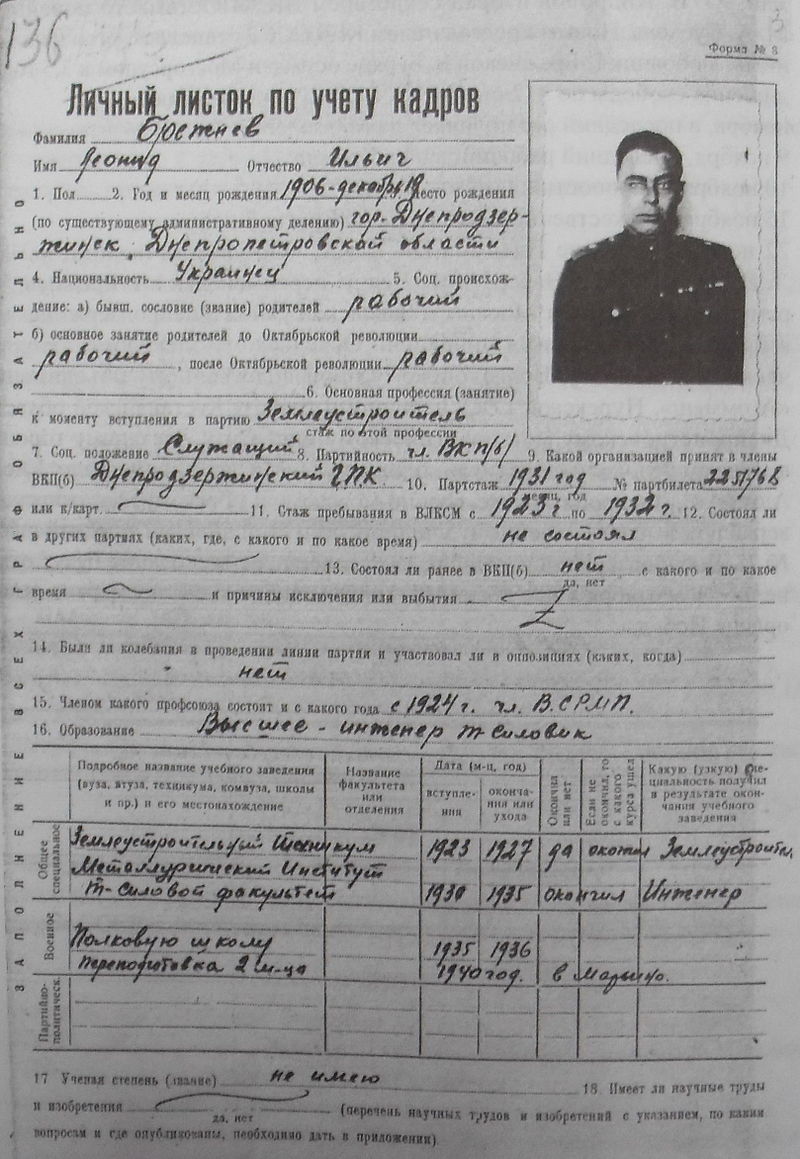 136
3
Форма № 3
Личный листок по учету кадров
Фамилия Брежнев
Имя Леонид Отчество Ильич
1. Пол 2. Год и месяц рождения 1906-декабрь 19 3. Место рождения
(по существующему административному делению) гор. Днепродзер-
жинск, Днепропетровской области
4. Национальность Украинец 5. Соц. происхож-
дение: а) бывш. сословие (звание) родителей рабочий
б) основное занятие родителей до Октябрьской революции
рабочий, после Октябрьской революции рабочий
6. Основная профессия (занятие)
к моменту вступления в партию Землеустроитель
стаж по этой профессии
7. Соц. положение Служащий 8. Партийность чл. ВКП/б/ 9. Какой организацией принят в члены
ВКП(б) Днепродзержинский ГПК 10. Партстаж 1931 год № партбилета
месяц, год
или к/карт. 11. Стаж пребывания в ВЛКСМ с 1923 г по 1932 г. 12. Состоял ли
в других партиях (каких, где, с какого и по какое время) не состоял
13. Состоял ли ранее в ВКП(б) нет с какого и по какое
да, нет
время и причины исключения или выбытия
14. Были ли колебания в проведении линии партии и участвовал ли в оппозициях (каких, когда)
нет
15. Членом какого профсоюза состоит и с какого года с 1924 г. чл. В.СРМП.
16. Образование Высшее - инженер т-силовик
Подробное название учебного заведения (вуза, втуза, техникума, комвуза, школы и пр.) и его местонахождение
Название факультета или отделения
Дата (м-ц, год)
вступле-ния
оконча-ния или ухода
Окончил или нет
Если не окончил, то с какого курса ушел
Какую (узкую) спе-циальность получил в результате окон-чания учебного заведения
Общее специальное
Землеустроительный Техникум 1923 1927 да окончил Землеустроитель
Металлургический Институт
т-силовой факультет 1930 1935 окончил Инженер
Военное
Полковую школу 1935 1936
переподготовка 2 м-ца 1940 год.
Партийно-политическ.
17 Ученая степень (звание) не имею
18. Имеет ли научные труды
и изобретения (перечень научных трудов и изобретений с указанием, по каким
да, нет
вопросам и где опубликованы, необходимо дать в приложении)
ЗАПОЛНЕНИЕ ВСЕХ ГРАФ ОБЯЗАТЕЛЬНО